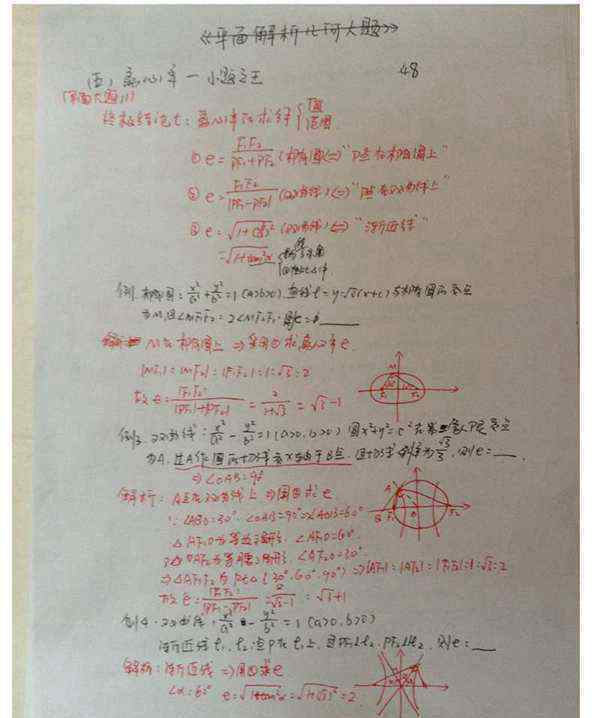 《平面解析几何大题》
(五) 离心率—小题之王 48
终极结论七: 离心率的求解 { 值 范围
① e = F₁F₂ / (PF₁+PF₂) (椭圆) ⇔ "P点在椭圆上"
② e = F₁F₂ / |PF₁-PF₂| (双曲线) ⇔ "P点在双曲线上"
③ e = √(1+(b/a)²) (双曲线) ⇔ "渐近线"
= √(1+tan²α)
例1. 椭圆: x²/a² + y²/b² = 1 (a>b>0), 直线l = y=√3(x+c) 与椭圆的交点
为M, 且∠MF₁F₂ = 2∠MF₂F₁, 则e =
解析: M在椭圆上 ⇒ 采用①求离心率e.
|MF₁| : |MF₂| : |F₁F₂| = 1 : √3 : 2
故 e = |F₁F₂| / (|PF₁|+|PF₂|) = 2/(1+√3) = √3-1
双曲线: x²/a² - y²/b² = 1 (a>0, b>0) 圆x²+y²=c²在第二象限交点
为A, 过A作圆的切线与x轴交于B点, 且切线斜率为√3/3, 则e =
⇒ ∠OAB = 90°
解析: A点在双曲线上 ⇒ 用②求e
∵ ∠ABO = 30°, ∠OAB = 90° ⇒ ∠AOB = 60°
△AF₁O为等边三角形, ∠AF₁O = 60°
△OAF₂为等腰三角形, ∠AF₂O = 30°
⇒ △AF₁F₂为Rt△(30°, 60°, 90°) ⇒ |AF₁| : |AF₂| : |F₁F₂| = 1 : √3 : 2
故 e = |F₁F₂| / |PF₁-PF₂| = 2/(√3-1) = √3+1
例4. 双曲线: x²/a² - y²/b² = 1 (a>0, b>0)
渐近线l₁, l₂, 点P在l₁上, 且PF₁⊥l₂, PF₂∥l₂, 则e =
解析: 渐近线 ⇒ 用③求e
∠α = 60° e = √(1+tan²α) = √(1+(√3)²) = 2